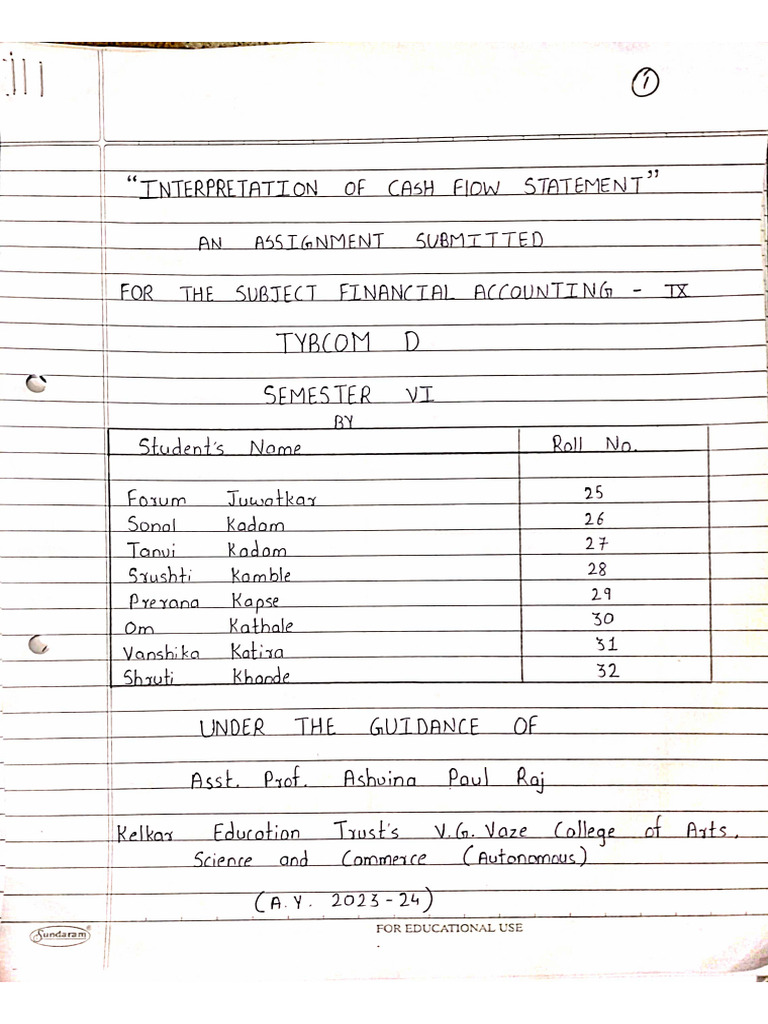 1
"INTERPRETATION OF CASH FlOW STATEMENT"
AN ASSIGNMENT SUBMITTED
FOR THE SUBJECT FINANCIAL ACCOUNTING - IX
TYBCOM D
SEMESTER VI
BY
Student's Name Roll No.
Forum Juwatkar 25
Sonal Kadam 26
Tanvi Kadam 27
Srushti Kamble 28
Prerana Kapse 29
Om Kathale 30
Vanshika Katira 31
Shruti Khande 32
UNDER THE GUIDANCE OF
Asst. Prof. Ashvina Paul Raj
Kelkar Education Trust's V.G. Vaze College of Arts,
Science and Commerce (Autonomous)
(A.Y. 2023-24)
Sundaram FOR EDUCATIONAL USE